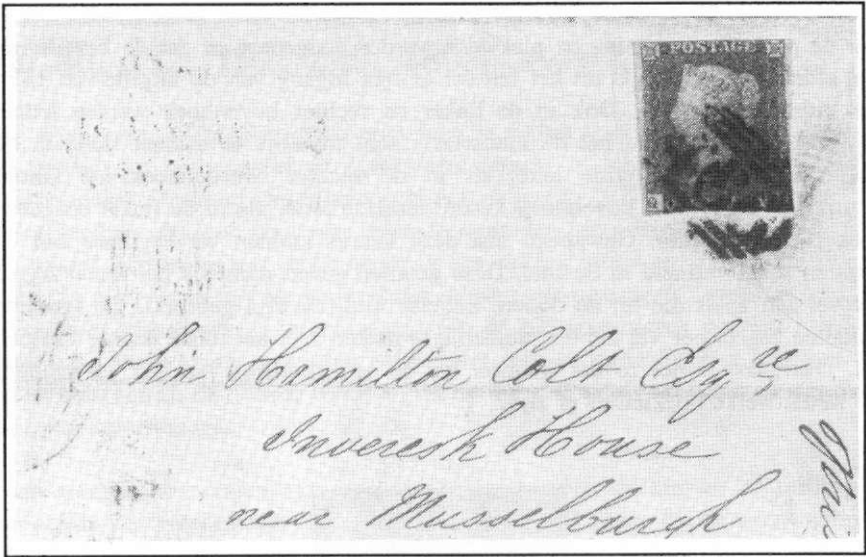 POSTAGE
John Hamilton Colt Esqre
Inveresk House
near Musselburgh